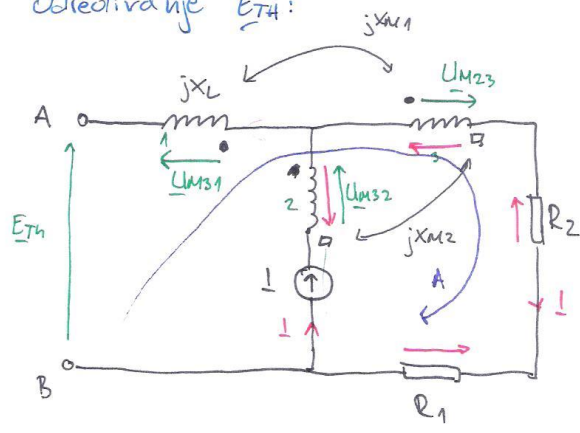 Određivanje ETH:
jXM1
jXL
UM23
A
1
UM31
3
2
UM32
jXM2
ETH
R2
I
A
I
I
B
R1